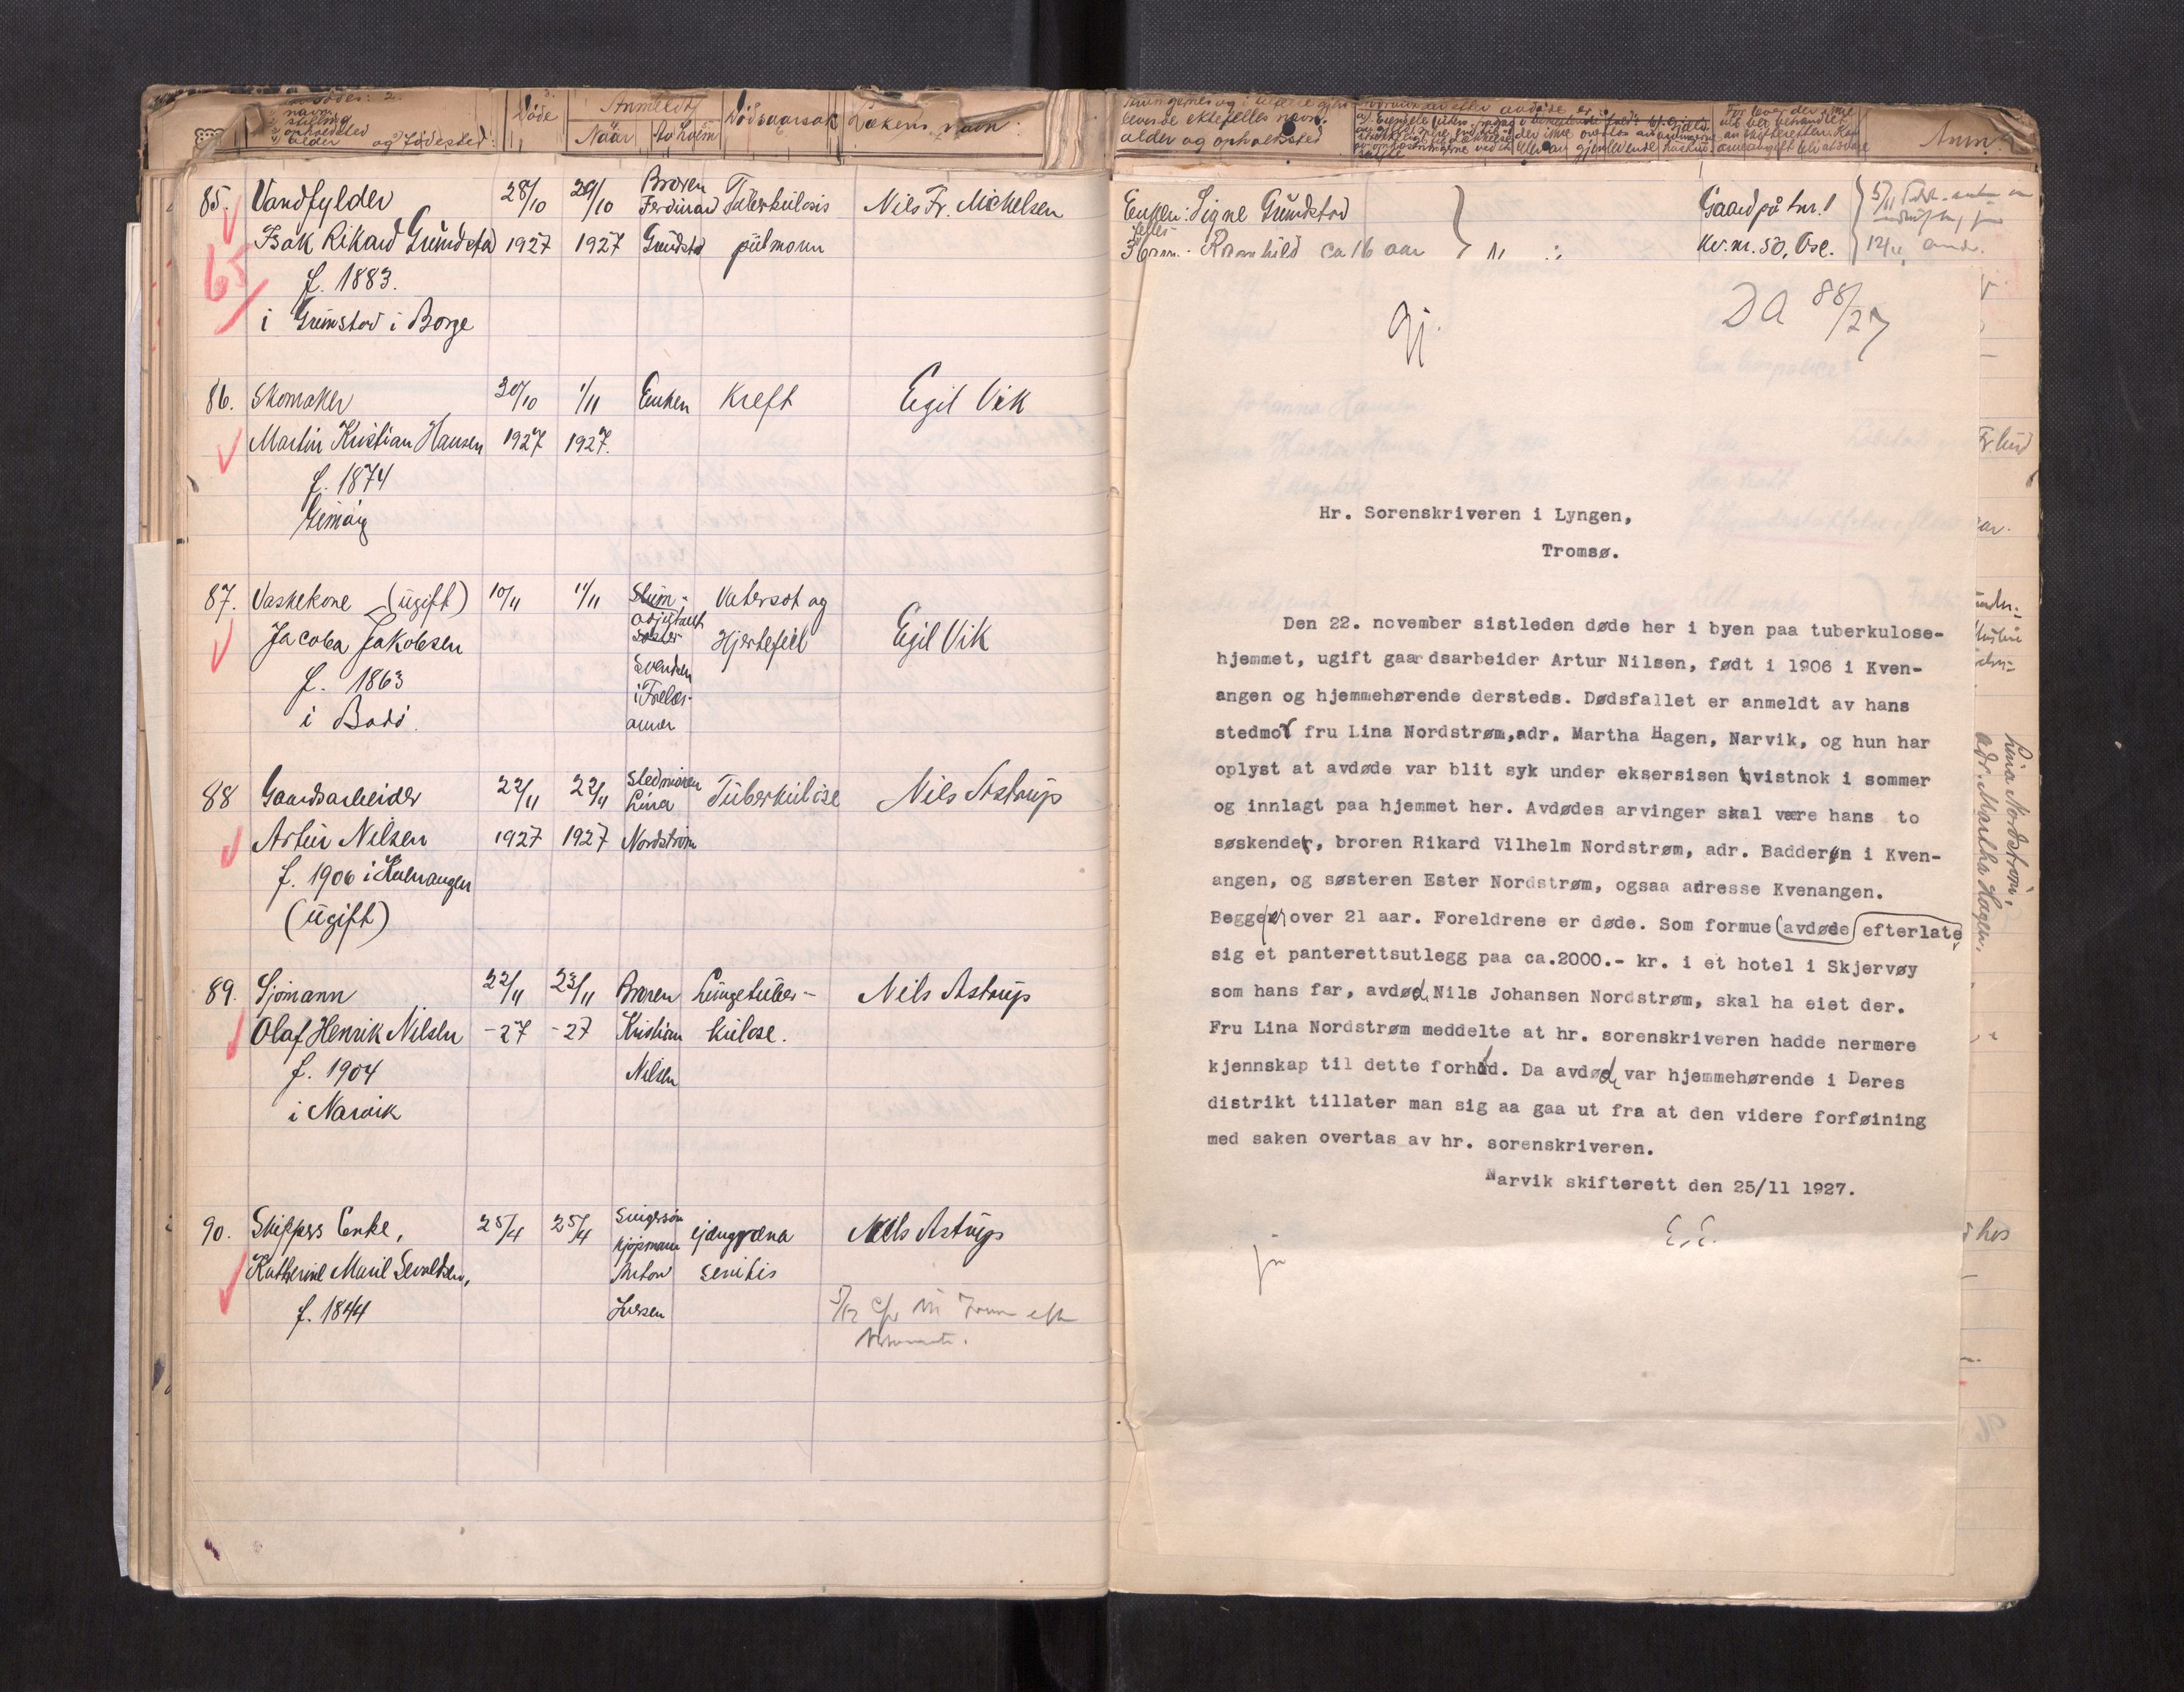 navn
stilling
opholdsted
alder og födested:
Döde
Anmeldt
Naar
av hvem
Dödsaarsak
Lækens navn
85. Vandfylder 28/10 29/10 Broren Tuberkulosis Nils Fr. Michelsen
Ferdinand
Isak Rikard Grundstad 1927 1927 Grundstad pulmonn
f. 1883.
65
i Grimstad i Borge
86. Skomaker 30/10 1/11 Enken Kreft Egil Vik
Martin Kristian Hansen 1927 1927.
f. 1874
Gimsöy
87. Vaskekone (ugift) 10/11 11/11 Slum- Vatersot og
adjutant
Jacoba Jakobsen söster Hjertefeil Egil Vik
f. 1863 Svendsen
i Frelses-
i Bodö. armeen
88 Gaardsarbeider 22/11 22/11 Stedmoren Tuberkulose Nils Astrup
Lina
Artur Nilsen 1927 1927 Nordström
f. 1906 i Kvenangen
(ugift)
89. Sjömann 22/11 23/11 Broren Lungetuber- Nils Astrup
Olaf Henrik Nilsen -27 -27 Kristian kulose.
f. 1904 Nilsen
i Narvik
90. Skippers Enke, 25/4 25/4 Svigersön gjangræna Nils Astrup
kjöpmann
Katherine Marie Sevaldsen, Anton senilis
f. 1844 Iversen
levende ektefelles navn.
alder og opholdssted
Anm.
Enken: Signe Grundstad Gaard på tnr. 1
Ragnhild ca 16 aar kv. nr. 50, Ose.
12/11
gj.
DA 88/27
Hr. Sorenskriveren i Lyngen,
Tromsø.
Den 22. november sistleden døde her i byen paa tuberkulose-
hjemmet, ugift gaardsarbeider Artur Nilsen, født i 1906 i Kven-
angen og hjemmehørende dersteds. Dødsfallet er anmeldt av hans
stedmor fru Lina Nordstrøm,adr. Martha Hagen, Narvik, og hun har
oplyst at avdøde var blit syk under eksersisen hvistnok i sommer
og innlagt paa hjemmet her. Avdødes arvinger skal være hans to
søskender, broren Rikard Vilhelm Nordstrøm, adr. Badderen i Kven-
angen, og søsteren Ester Nordstrøm, ogsaa adresse Kvenangen.
Begge er over 21 aar. Foreldrene er døde. Som formue avdøde efterlate
sig et panterettsutlegg paa ca.2000.- kr. i et hotel i Skjervøy
som hans far, avdød Nils Johansen Nordstrøm, skal ha eiet der.
Fru Lina Nordstrøm meddelte at hr. sorenskriveren hadde nermere
kjennskap til dette forhold. Da avdøde var hjemmehørende i Deres
distrikt tillater man sig aa gaa ut fra at den videre forføining
med saken overtas av hr. sorenskriveren.
Narvik skifterett den 25/11 1927.
E.E.
Lina Nordström,
adr. Martha Hagen.
hos